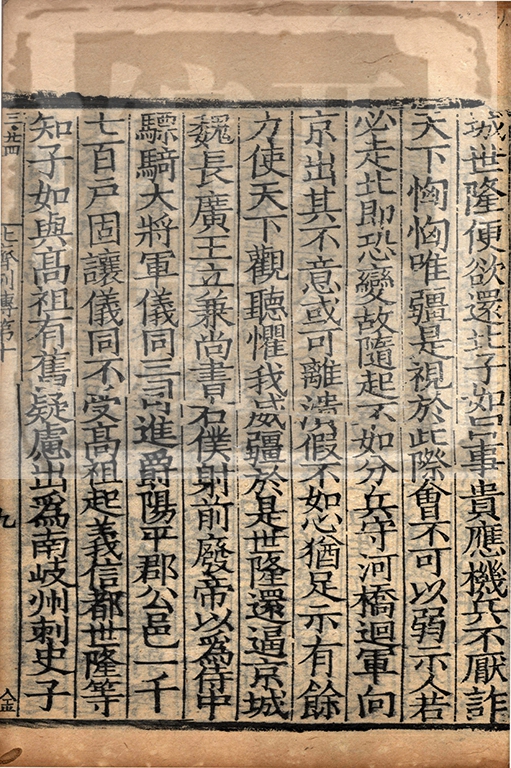 城世隆便欲還北子如曰事貴應機兵不厭詐
天下恟恟唯彊是視於此際會不可以弱示人若
必走北即恐變故隨起不如分兵守河橋迴軍向
京出其不意或可離潰假不如心猶足示有餘
力使天下觀聽懼我威彊於是世隆還逼京城
魏長廣王立兼尚書右僕射前廢帝以為侍中
驃騎大將軍儀同三司進爵陽平郡公邑一千
七百戶固讓儀同不受高祖起義信都世隆等
知子如與高祖有舊疑慮出為南岐州刺史子
三廿四
北齊列傳第十
九
金